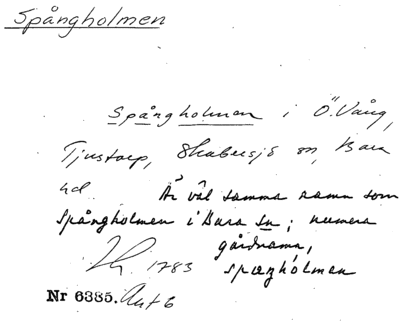 Spångholmen
Spångholmen i Ö. Vång,
Tjustorp, Skabersjö sn, Bara
hd. Är väl samma namn som
Spångholmen i Bara sn; numera
gårdnamn,
1783 Spægholmen
Nr 6385. Ant 6